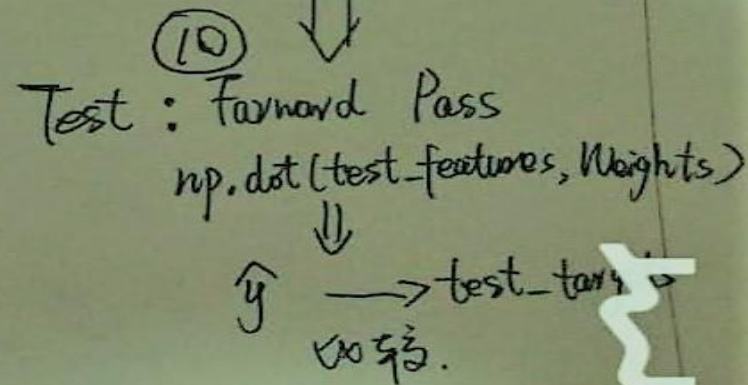 ⑩
Test : Forward Pass
np.dot(test_features, Weights)
ŷ → test_targets
比较.